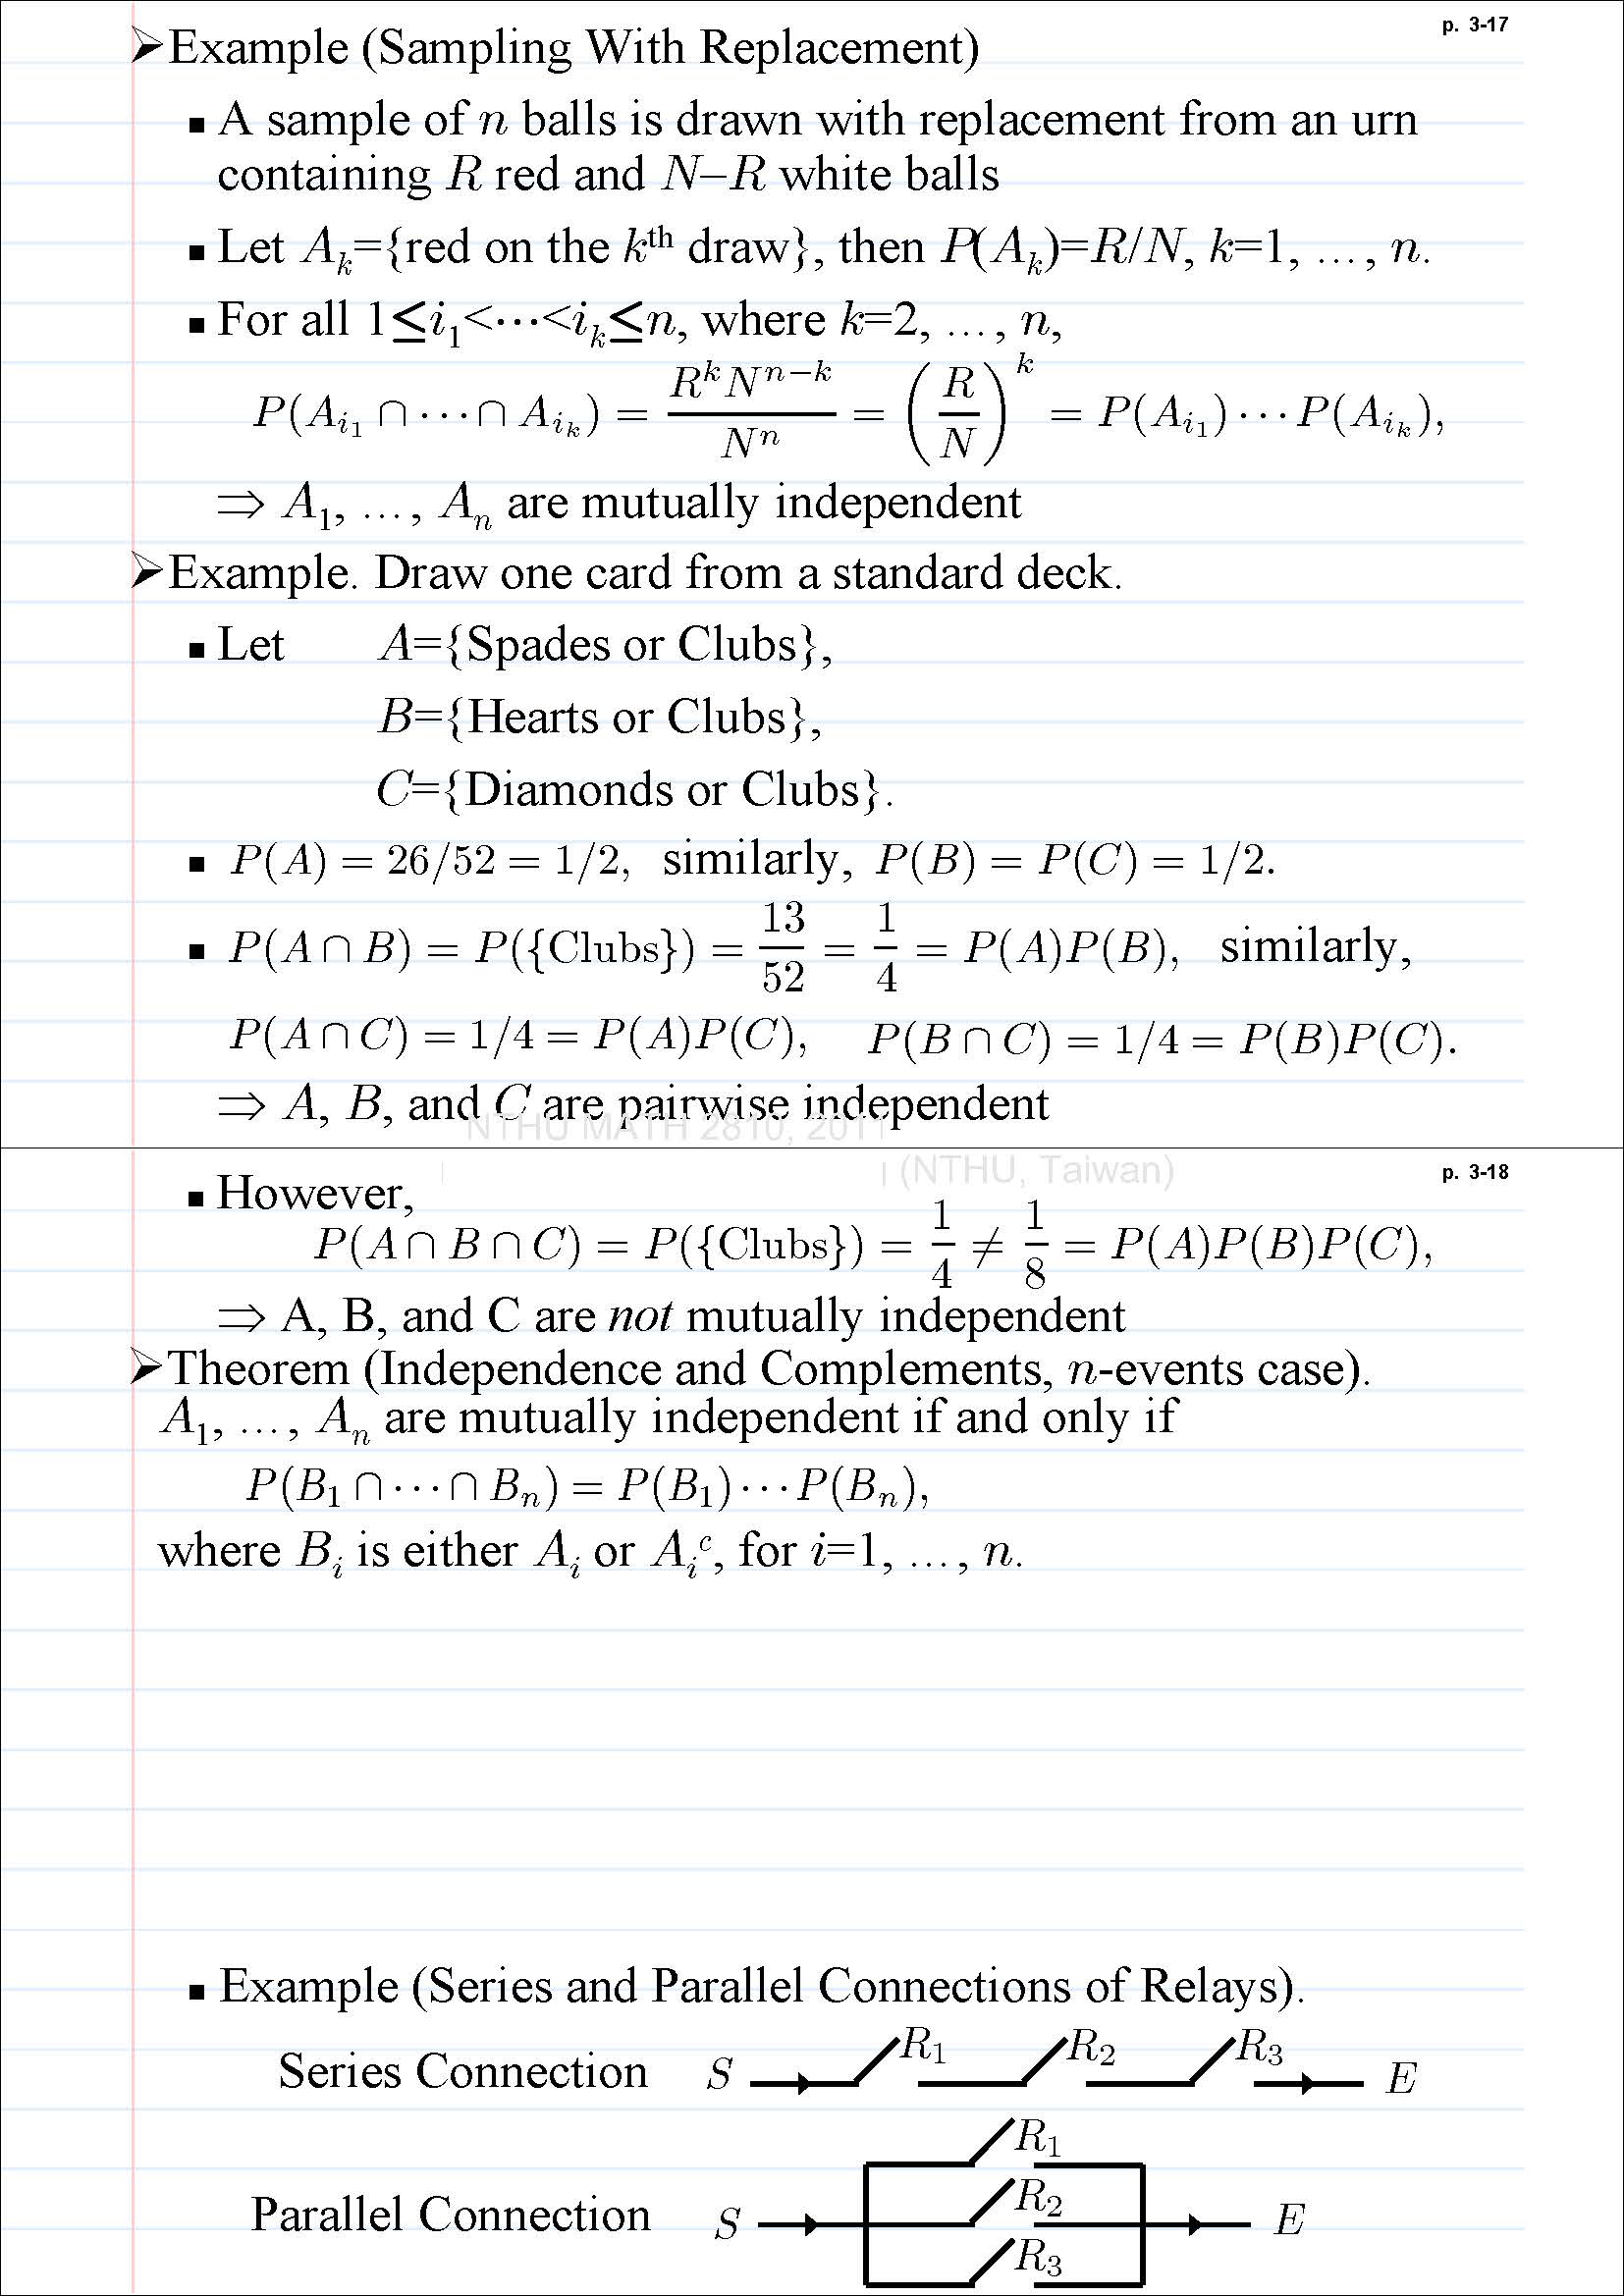 p. 3-17
➢Example (Sampling With Replacement)
▪ A sample of n balls is drawn with replacement from an urn
containing R red and N–R white balls
▪ Let Aₖ={red on the kᵗʰ draw}, then P(Aₖ)=R/N, k=1, …, n.
▪ For all 1≤i₁<⋯<iₖ≤n, where k=2, …, n,
P(A_{i₁} ∩ ⋯ ∩ A_{iₖ}) = \frac{R^k N^{n−k}}{N^n} = (\frac{R}{N})^k = P(A_{i₁}) ⋯ P(A_{iₖ}),
⇒ A₁, …, Aₙ are mutually independent
➢Example. Draw one card from a standard deck.
▪ Let A={Spades or Clubs},
B={Hearts or Clubs},
C={Diamonds or Clubs}.
▪ P(A) = 26/52 = 1/2, similarly, P(B) = P(C) = 1/2.
▪ P(A ∩ B) = P({Clubs}) = \frac{13}{52} = \frac{1}{4} = P(A)P(B), similarly,
P(A ∩ C) = 1/4 = P(A)P(C), P(B ∩ C) = 1/4 = P(B)P(C).
⇒ A, B, and C are pairwise independent
NTHU MATH 2810, 2011
(NTHU, Taiwan)
p. 3-18
▪ However,
P(A ∩ B ∩ C) = P({Clubs}) = \frac{1}{4} ≠ \frac{1}{8} = P(A)P(B)P(C),
⇒ A, B, and C are not mutually independent
➢Theorem (Independence and Complements, n-events case).
A₁, …, Aₙ are mutually independent if and only if
P(B₁ ∩ ⋯ ∩ Bₙ) = P(B₁) ⋯ P(Bₙ),
where Bᵢ is either Aᵢ or Aᵢᶜ, for i=1, …, n.
▪ Example (Series and Parallel Connections of Relays).
Series Connection S R₁ R₂ R₃ E
R₁
Parallel Connection S R₂ E
R₃